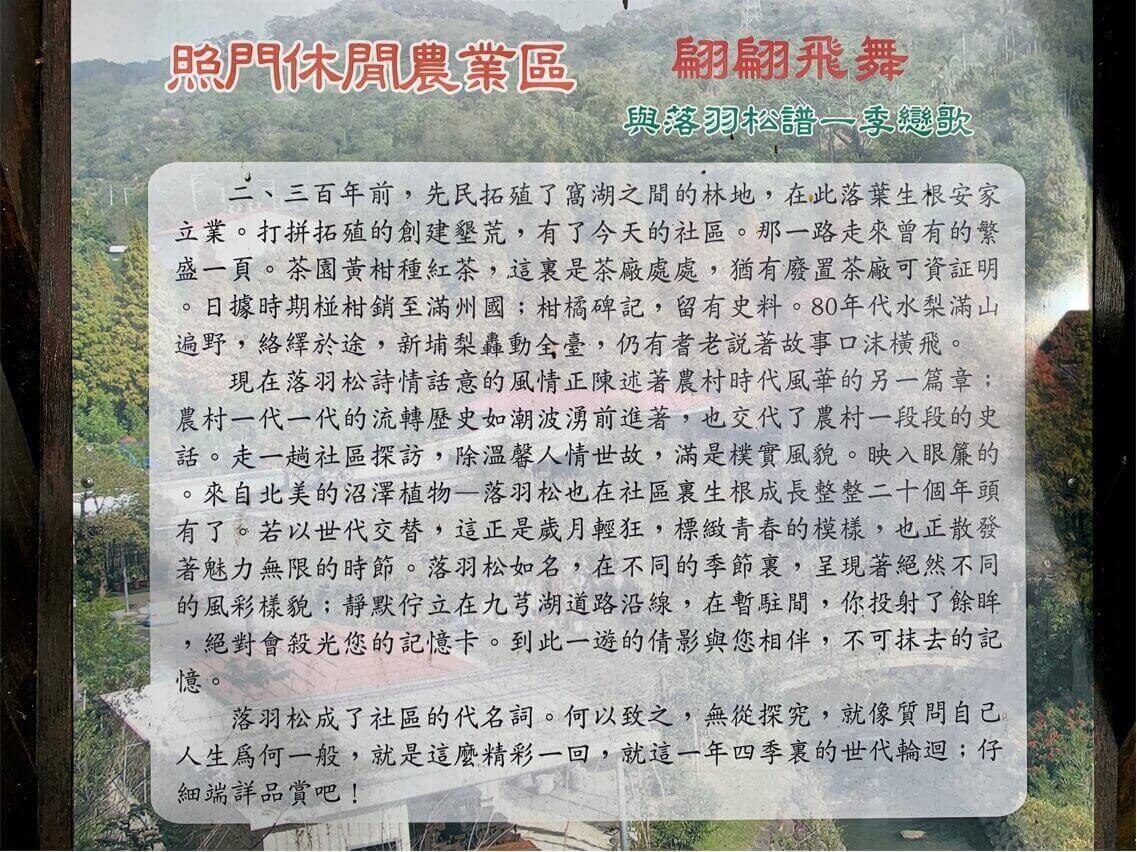 照門休閒農業區
翩翩飛舞
與落羽松譜一季戀歌
二、三百年前，先民拓殖了窩湖之間的林地，在此落葉生根安家
立業。打拼拓殖的創建墾荒，有了今天的社區。那一路走來曾有的繁
盛一頁。茶園黃柑種紅茶，這裏是茶廠處處，猶有廢置茶廠可資証明
。日據時期椪柑銷至滿州國；柑橘碑記，留有史料。80年代水梨滿山
遍野，絡繹於途，新埔梨轟動全臺，仍有耆老說著故事口沫橫飛。
現在落羽松詩情話意的風情正陳述著農村時代風華的另一篇章；
農村一代一代的流轉歷史如潮波湧前進著，也交代了農村一段段的史
話。走一趟社區探訪，除溫馨人情世故，滿是樸實風貌。映入眼簾的
。來自北美的沼澤植物—落羽松也在社區裏生根成長整整二十個年頭
有了。若以世代交替，這正是歲月輕狂，標緻青春的模樣，也正散發
著魅力無限的時節。落羽松如名，在不同的季節裏，呈現著絕然不同
的風彩樣貌；靜默佇立在九芎湖道路沿線，在暫駐間，你投射了餘眸
，絕對會殺光您的記憶卡。到此一遊的倩影與您相伴，不可抹去的記
憶。
落羽松成了社區的代名詞。何以致之，無從探究，就像質問自己
人生為何一般，就是這麼精彩一回，就這一年四季裏的世代輪迴；仔
細端詳品賞吧！